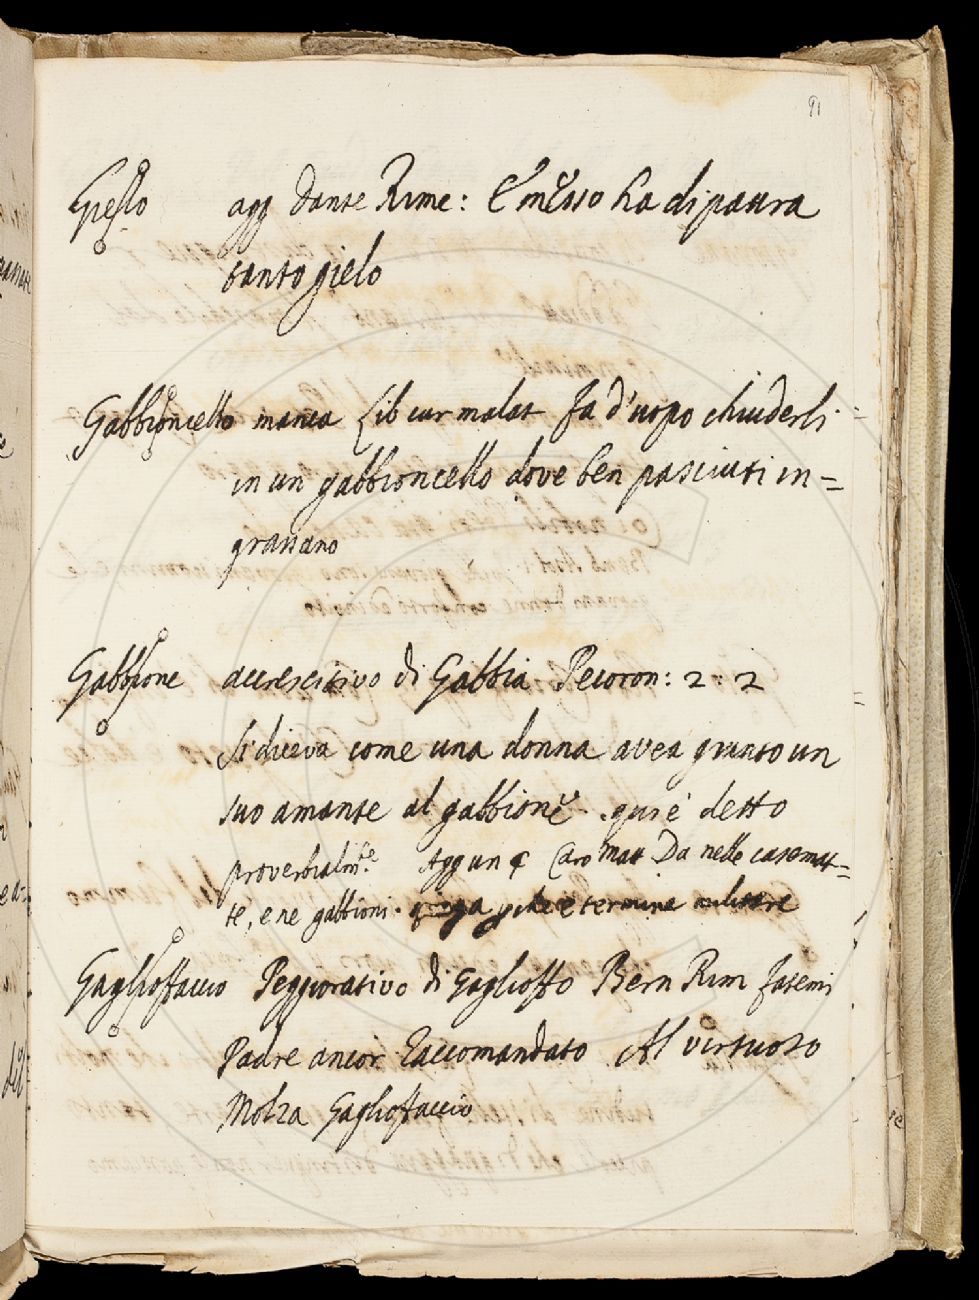 91
Gielo agg Dante Rime: E messo ha di paura
tanto gielo
Gabbioncello manca Lib cur malat fa d'uopo chiuderli
in un gabbioncello dove ben pasciuti in=
grassano
Gabbione accrescitivo di Gabbia. Pecoron: 2: 2
Si diceva come una donna avea giunto un
suo amante al gabbione. qui è detto
proverbialm.te Aggun Caro Matt Da nelle casemat=
te, e ne gabbioni. che è termine militare
Gaglioffaccio Peggiorativo di Gaglioffo Bern Rim fatemi
Padre ancor Raccomandato Al virtuoso
Molza Gaglioffaccio